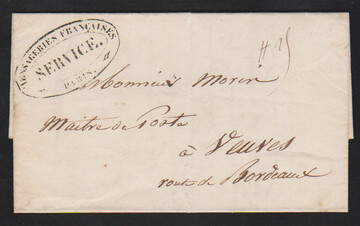 MESSAGERIES FRANÇAISES
SERVICE.
PARIS.
Monsieur Morin
Maitre de Poste
à Veuves
route de Bordeaux